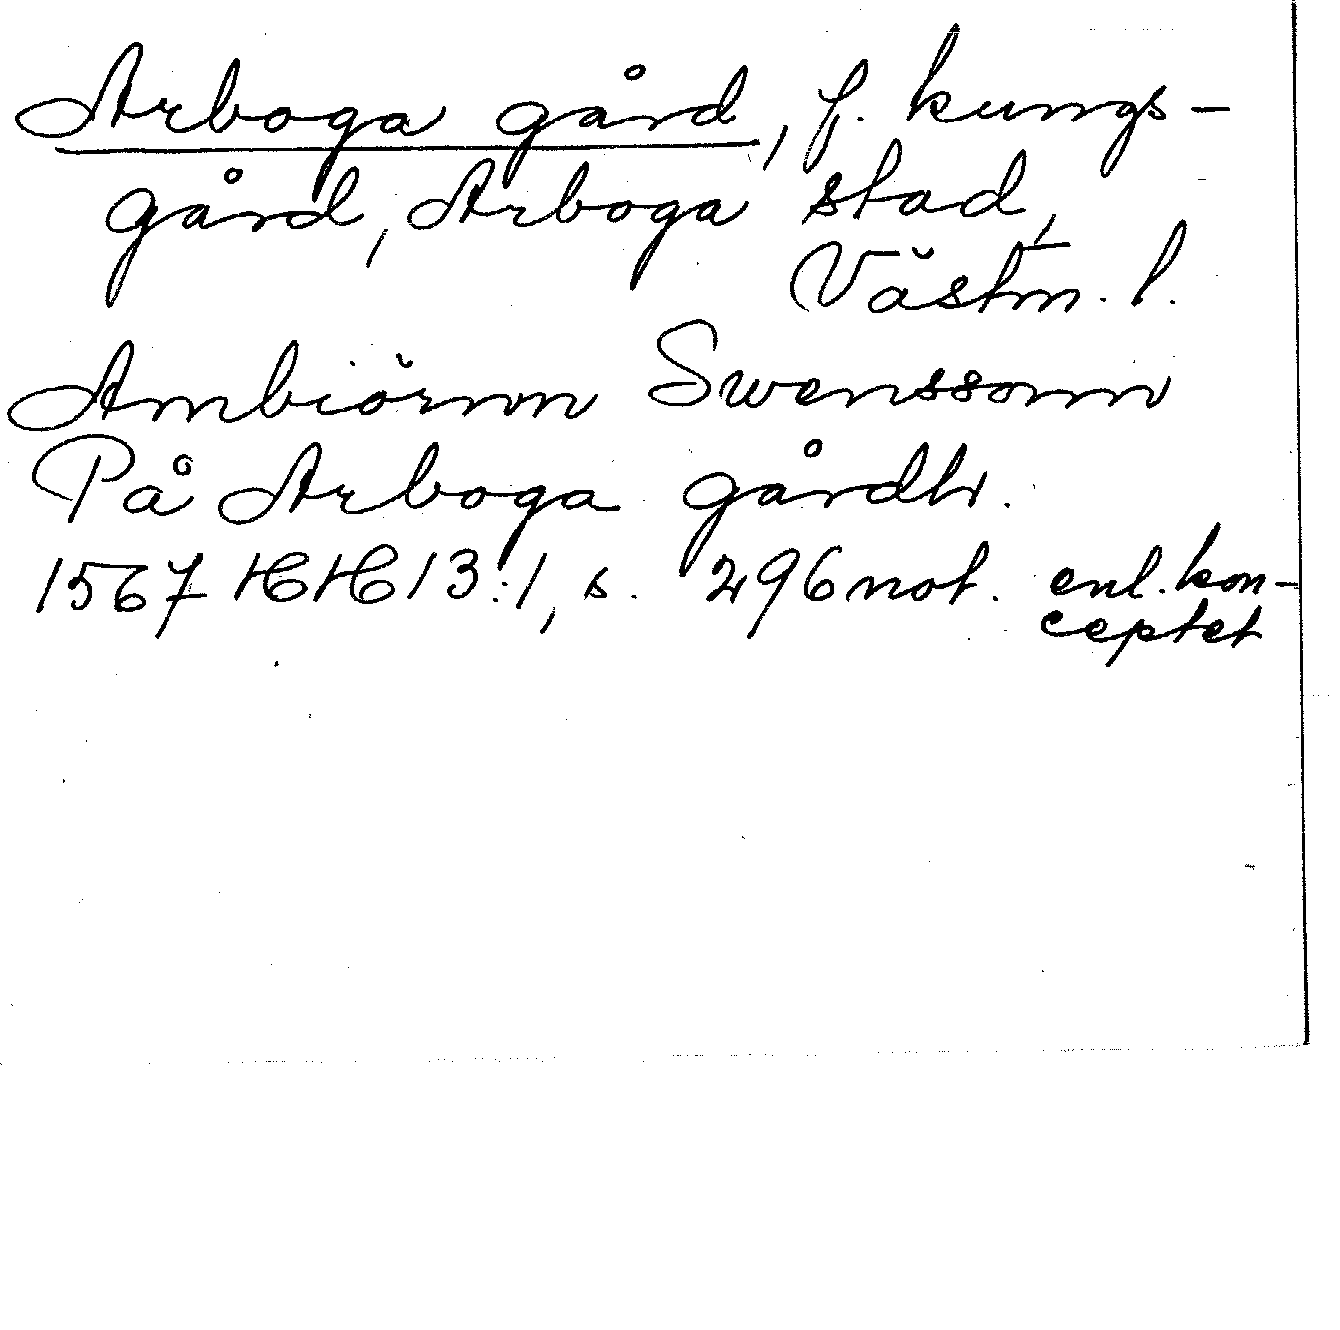 Arboga gård, f. kungs-
gård, Arboga stad,
Västm. l.
Ambiörnn Swenssonn
På Arboga gårdh.
1567 HH 13:1, s. 296 not. enl. kon-
ceptet